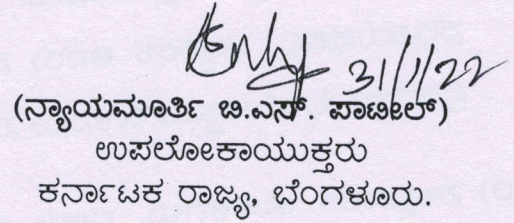 31/1/22
(ನ್ಯಾಯಮೂರ್ತಿ ಬಿ.ಎಸ್. ಪಾಟೀಲ್)
ಉಪಲೋಕಾಯುಕ್ತರು
ಕರ್ನಾಟಕ ರಾಜ್ಯ, ಬೆಂಗಳೂರು.